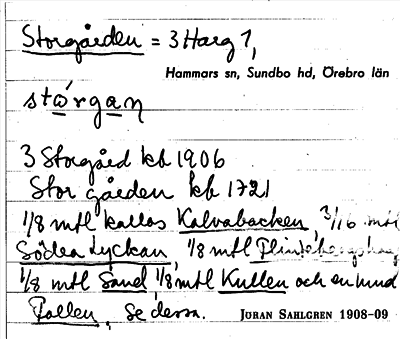 Storgården = 3 Harg 1,
Hammars sn, Sundbo hd, Örebro län
stωrgaɳ
3 Storgård kb 1906
Storgården kb 1721
1/8 mtl kallas Kalvabacken, 3/16 mtl
Södra Lyckan, 1/8 mtl
1/8 mtl Sand 1/8 mtl Kullen och en hund
Tallen, se dessa. JÖRAN SAHLGREN 1908-09